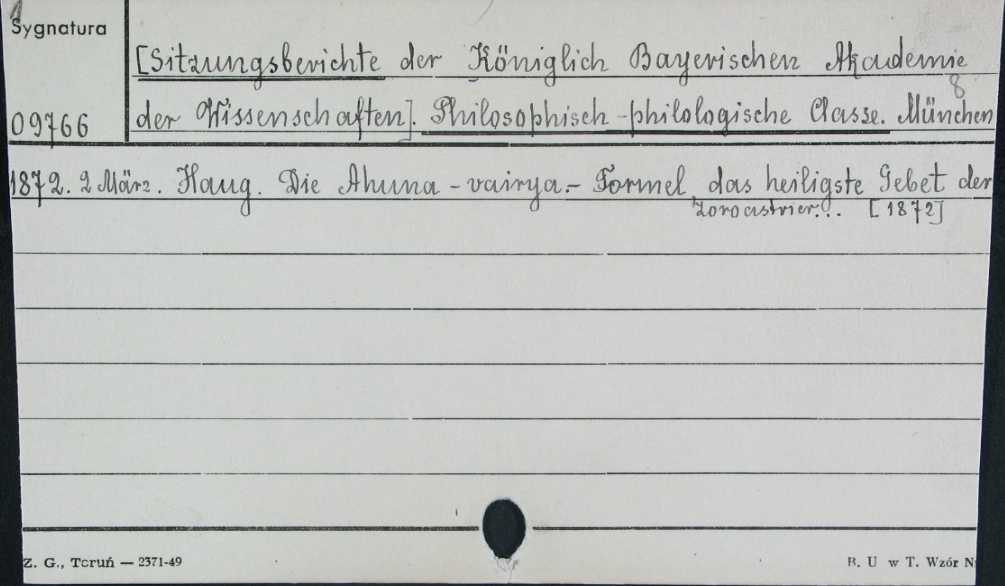 Sygnatura
[Sitzungsberichte der Königlich Bayerischen Akademie
8
09766
der Wissenschaften]. Philosophisch-philologische Classe. München
1872. 2 März. Haug. Die Ahuna-vairya-Formel, das heiligste Gebet der
Zoroastrier... [1872]
Z. G., Toruń — 2371-49
B. U w T. Wzór N